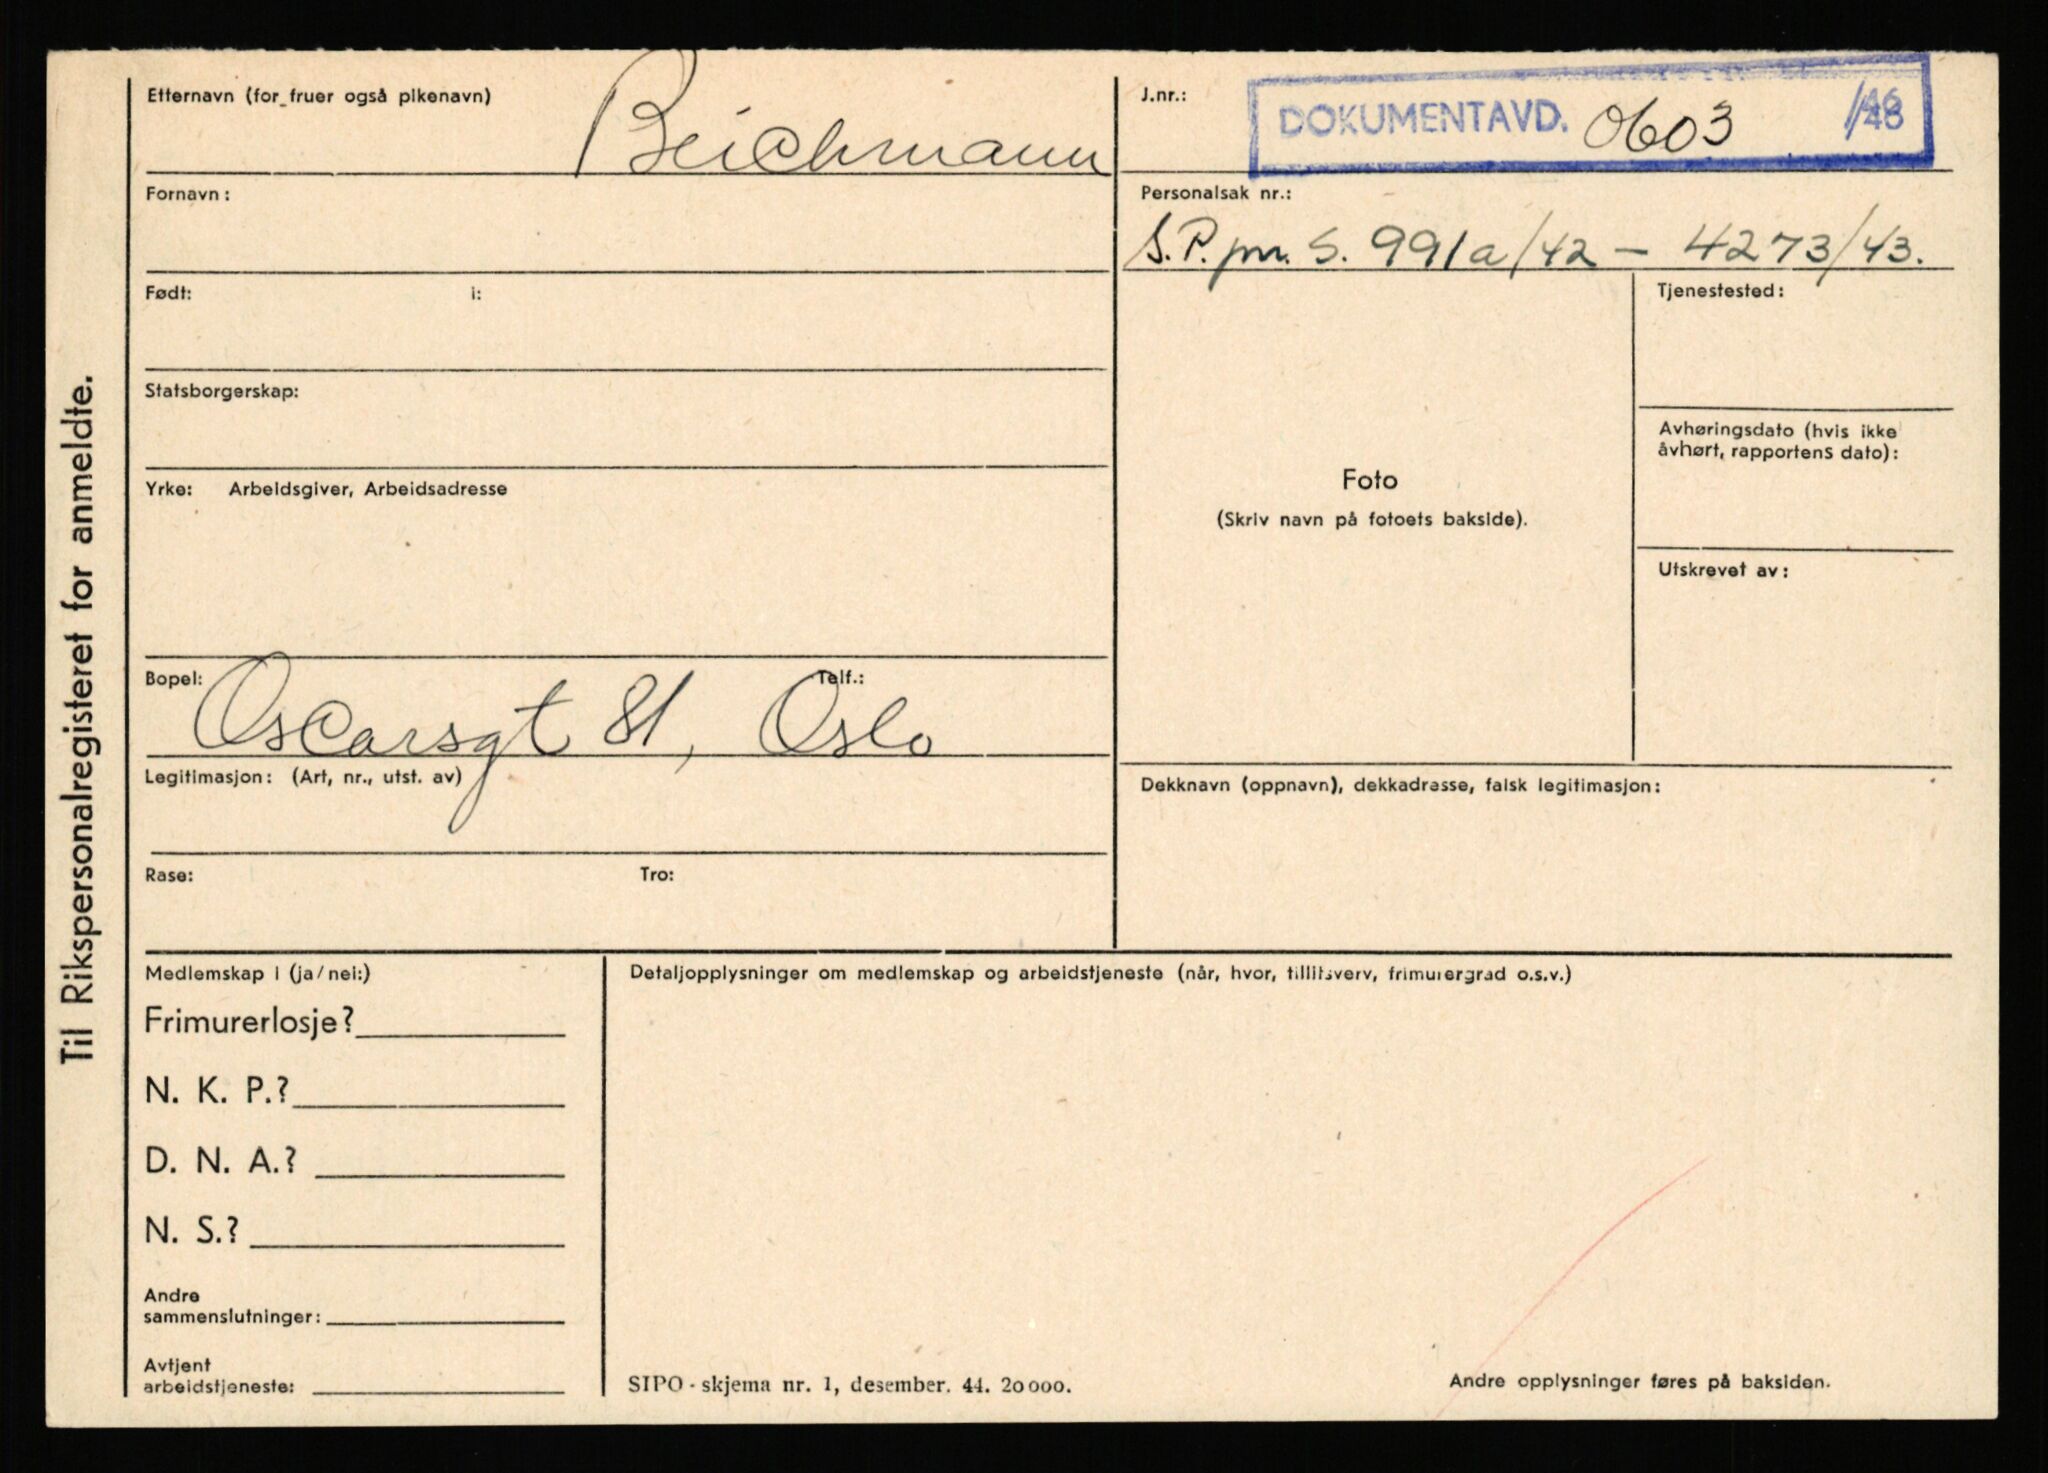 Til Rikspersonalregisteret for anmeldte.
Etternavn (for fruer også pikenavn)
Beichmann
Fornavn:
Født: i:
Statsborgerskap:
Yrke: Arbeidsgiver, Arbeidsadresse
Bopel: Telf.:
Oscarsgt 81, Oslo
Legitimasjon: (Art, nr., utst. av)
Rase: Tro:
J.nr.:
DOKUMENTAVD. 0603
Personalsak nr.:
S. P. jnr. S. 991a/42 – 4273/43.
Foto
(Skriv navn på fotoets bakside).
Tjenestested:
Avhøringsdato (hvis ikke
avhørt, rapportens dato):
Utskrevet av:
Dekknavn (oppnavn), dekkadresse, falsk legitimasjon:
Medlemskap i (ja/nei:)
Frimurerlosje?
N. K. P.?
D. N. A.?
N. S.?
Andre
sammenslutninger:
Avtjent
arbeidstjeneste:
Detaljopplysninger om medlemskap og arbeidstjeneste (når, hvor, tillitsverv, frimurergrad o.s.v.)
SIPO - skjema nr. 1, desember. 44. 20 000.
Andre opplysninger føres på baksiden.